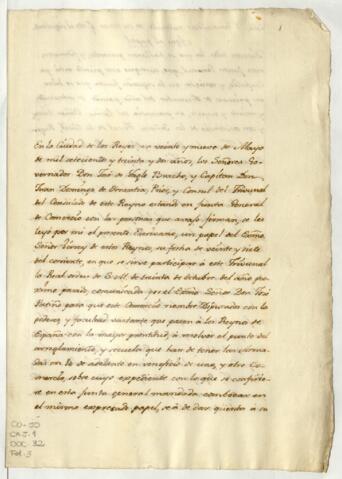 En la Ciudad de los Reyes en veinte y nueve de Mayo
de mil setecientos y treinta y dos años, los Señores Go-
vernador Don José de Tagle Bracho, y Capitan Don
Juan Domingo de Orrantia, Prior, y Consul del Tribunal
del Consulado de este Reyno estando en Junta General
de Comercio con las personas que avajo firman, se les
leyó por mi el presente Escrivano, un papel del Exmo
Señor Virrey de estos Reynos, su fecha de veinte y siete
del corriente, en que se sirve participar a este Tribunal
la Real orden de S. M. de treinta de Octubre del año pro-
ximo pasado, comunicada por el Exmo Señor Don José
Patiño para que este Comercio nombre Diputados con los
poderes y facultad vastante que pasen á los Reynos de
España con la mayor prontitud, á resolver el punto del
arreglamiento, y resuelta que han de tener las Arma-
das en lo de adelante en veneficio de ese, y otro Co-
mercio, sobre cuyo expediente con lo que se confirie-
re en esta Junta general mandada combocar en
el mismo expresado papel, se á de dar quenta á su
CO-JO
CAJ. 1
DOC. 32
Fol. 3